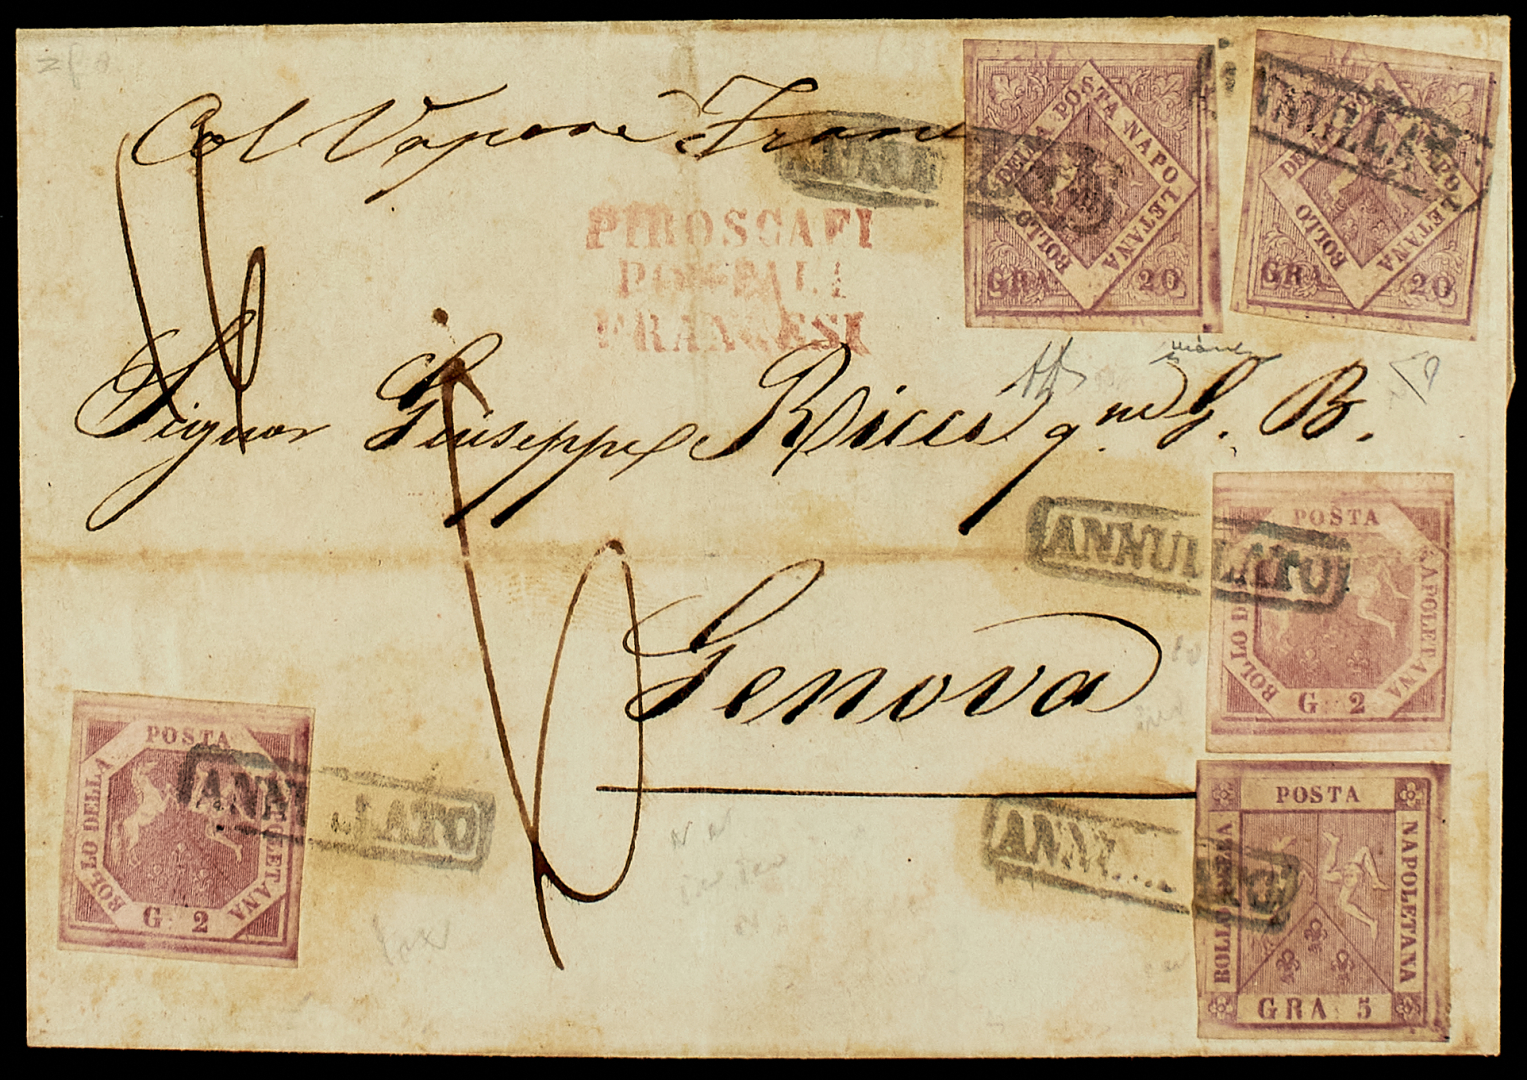 Col Vapore Franc
PIROSCAFI
POSTALI
FRANCESI
Signor Giuseppe Ricci qm G. B.
Genova
BOLLO DELLA POSTA NAPOLETANA
GRA 20
BOLLO DELLA POSTA NAPOLETANA
GRA 20
ANNULLATO
BOLLO DELLA POSTA NAPOLETANA
G. 2
ANNULLATO
BOLLO DELLA POSTA NAPOLETANA
GRA 5
ANNULLATO
BOLLO DELLA POSTA NAPOLETANA
G. 2
ANNULLATO